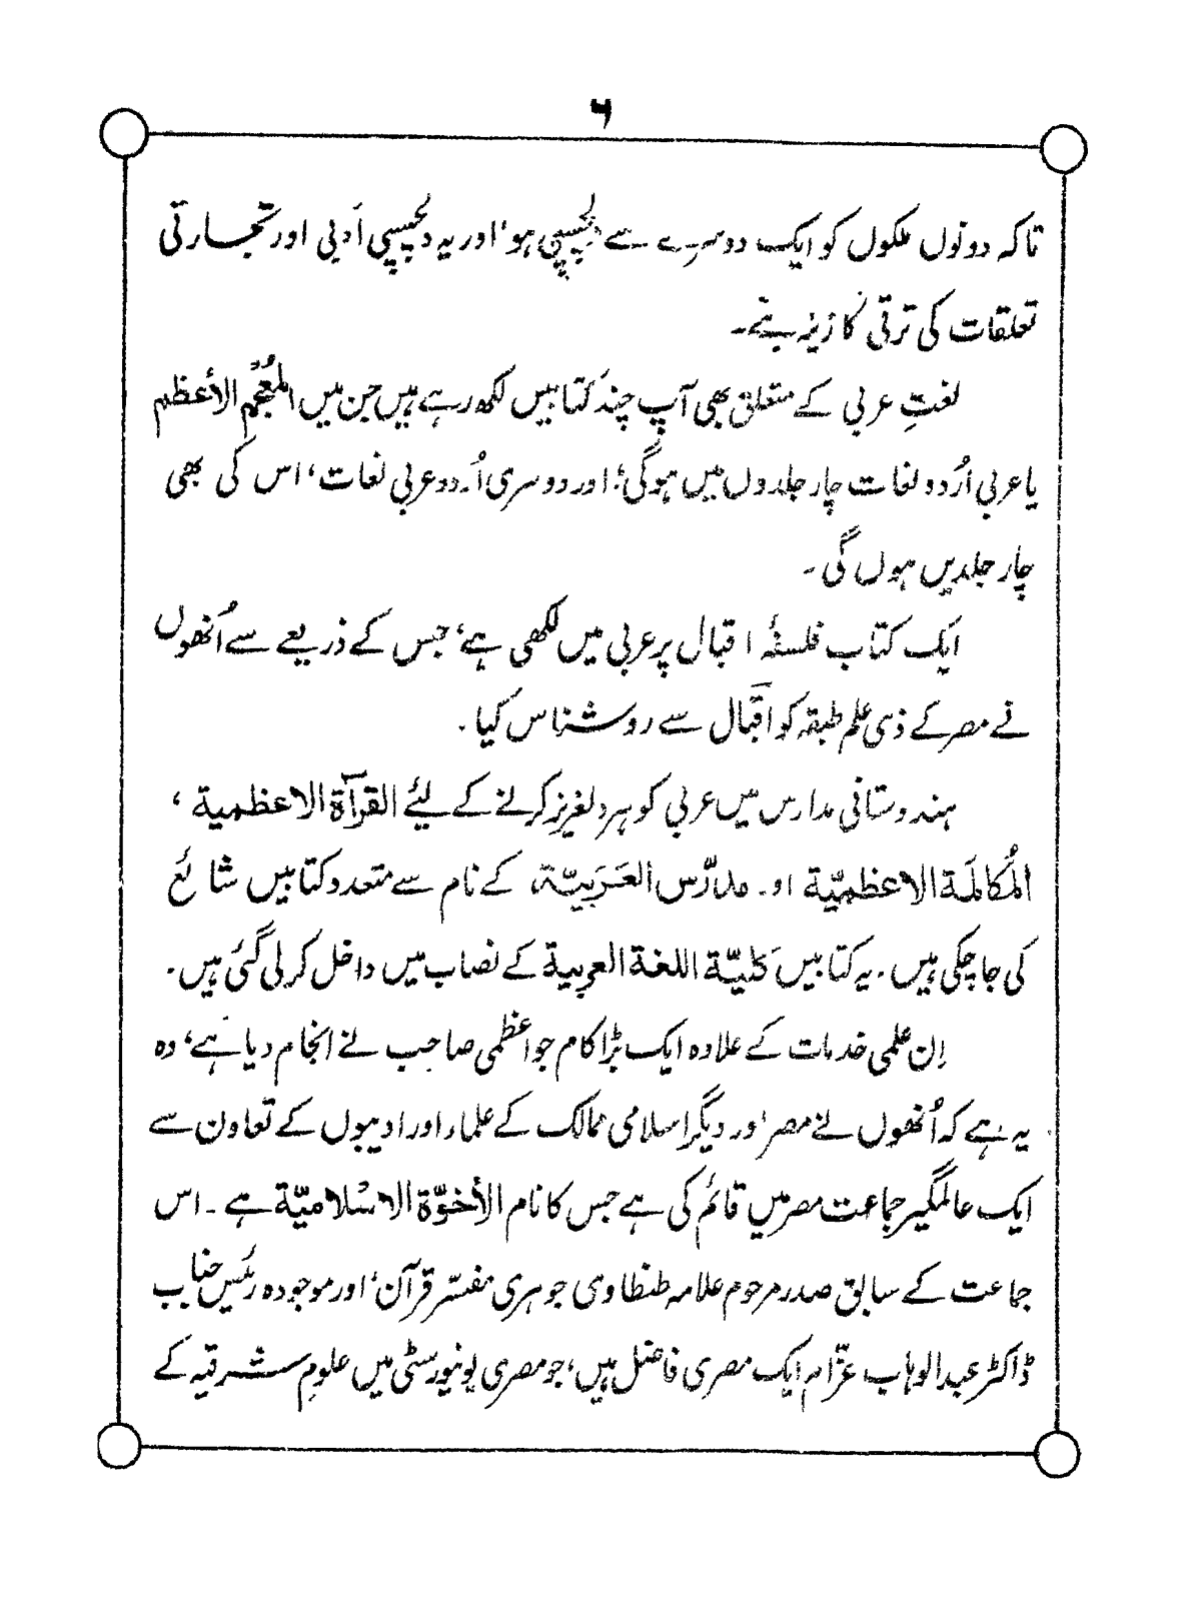 ۶
تاکہ دونوں ملکوں کو ایک دوسرے سے دلچسپی ہو، اور یہ دلچسپی اَدبی اور تجارتی
تعلقات کی ترقی کا زینہ بنے۔
لغتِ عربی کے متعلق بھی آپ چند کتابیں لکھ رہے ہیں جن میں المُعْجَم الأعظم
یا عربی اُردو لغات چار جلدوں میں ہوگی؛ اور دوسری اُردو عربی لغات، اس کی بھی
چار جلدیں ہوں گی۔
ایک کتاب فلسفۂ اقبال پر عربی میں لکھی ہے، جس کے ذریعے سے اُنھوں
نے مصر کے ذی علم طبقہ کو اقبال سے روشناس کیا۔
ہندوستانی مدارس میں عربی کو ہردلعزیز کرنے کے لیئے القرآة الاعظمیة،
المُکالَمَة الاعظمیّة اور مدرّس العَرَبیّة، کے نام سے متعدد کتابیں شائع
کی جاچکی ہیں۔ یہ کتابیں کلیّة اللغة العربیة کے نصاب میں داخل کرلی گئی ہیں۔
اِن علمی خدمات کے علاوہ ایک بڑا کام جو اعظمی صاحب نے انجام دیا ہے، وہ
یہ ہے کہ اُنھوں نے مصر اور دیگر اسلامی ممالک کے علماء اور ادیبوں کے تعاون سے
ایک عالمگیر جماعت مصر میں قائم کی ہے جس کا نام الأخوّة الاسْلامیّة ہے۔ اس
جماعت کے سابق صدر مرحوم علامہ طنطاوی جوہری مفسّر قرآن، اور موجودہ رئیس جناب
ڈاکٹر عبدالوہاب عزّام ایک مصری فاضل ہیں، جو مصری یونیورسٹی میں علومِ مشرقیہ کے